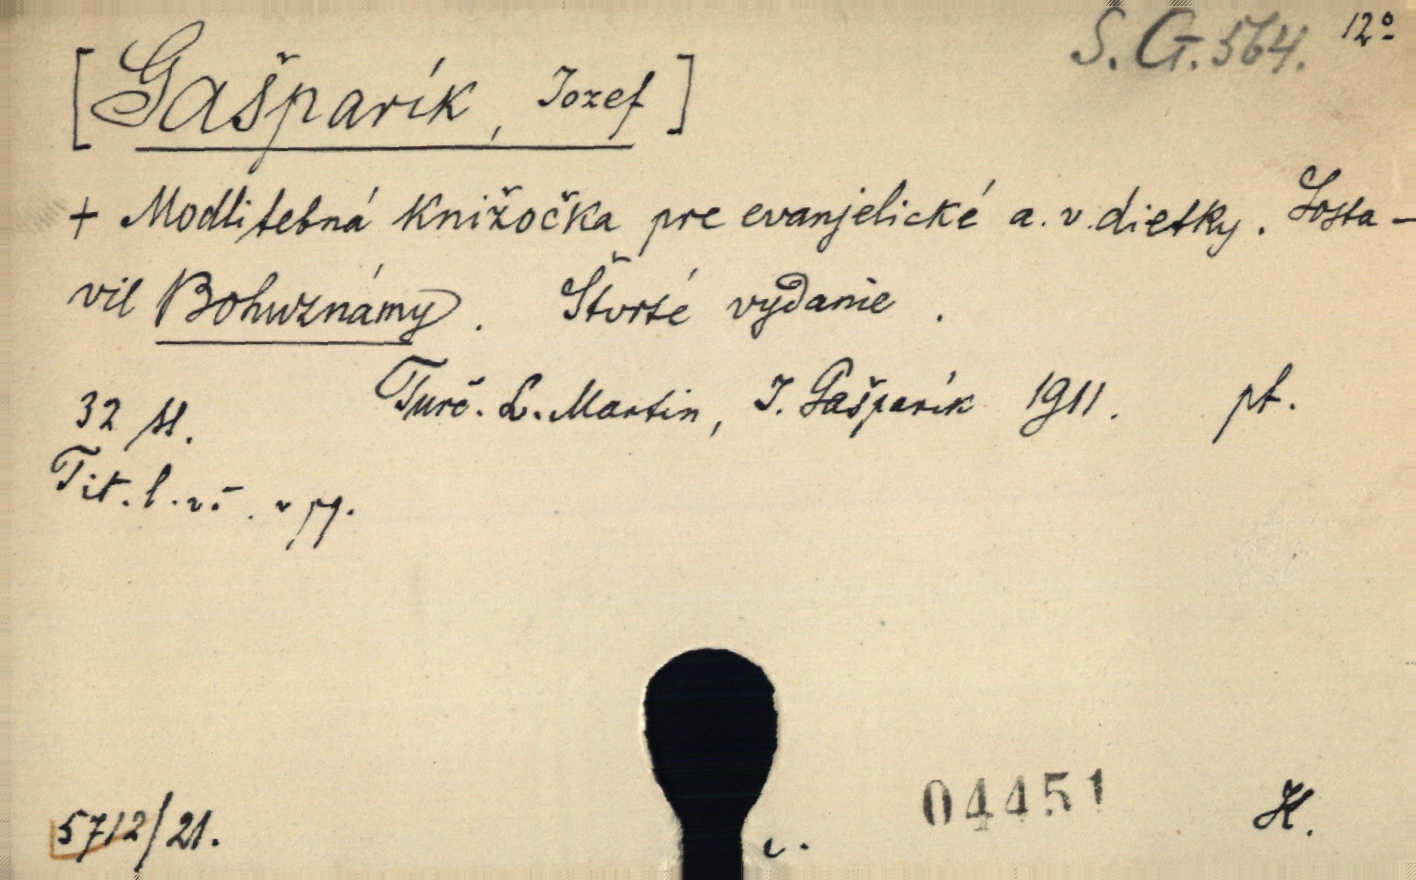 S. G. 564. 12º
[Gašparík, Jozef]
+ Modlitebná knižočka pre evanjelické a. v. dietky. Sosta-
vil Bohuznámy. Štvrté vydanie.
Turč. L. Martin, J. Gašparík 1911. pt.
32 st.
Tit. l.
5712/21.
04451
c.
H.